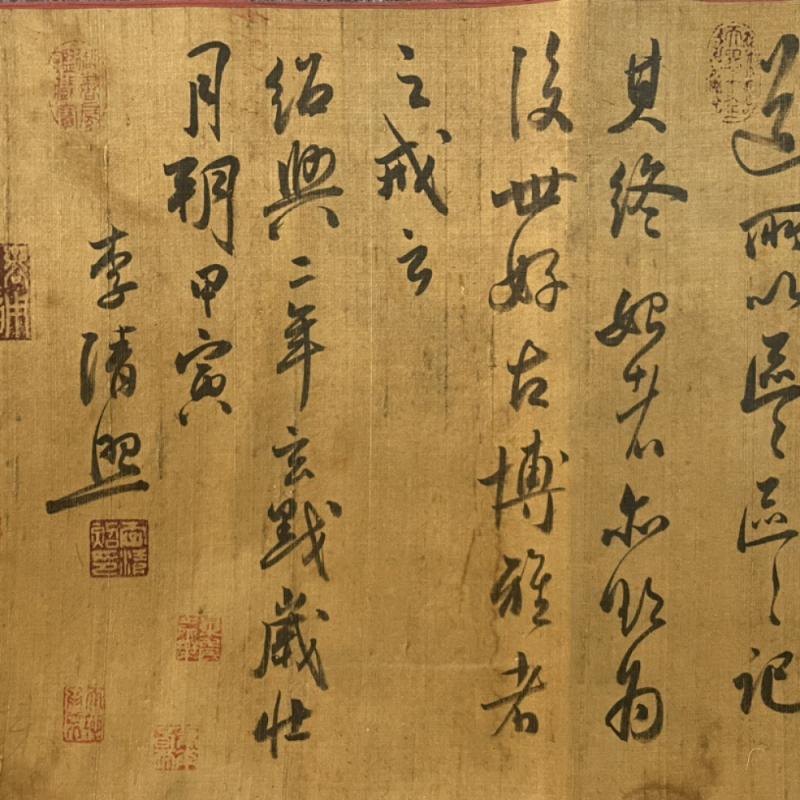 道所以區〻區〻記
其終始者亦欲為
後世好古博雅者
之戒云
紹興二年玄黓歲壯
月朔甲寅
李清照